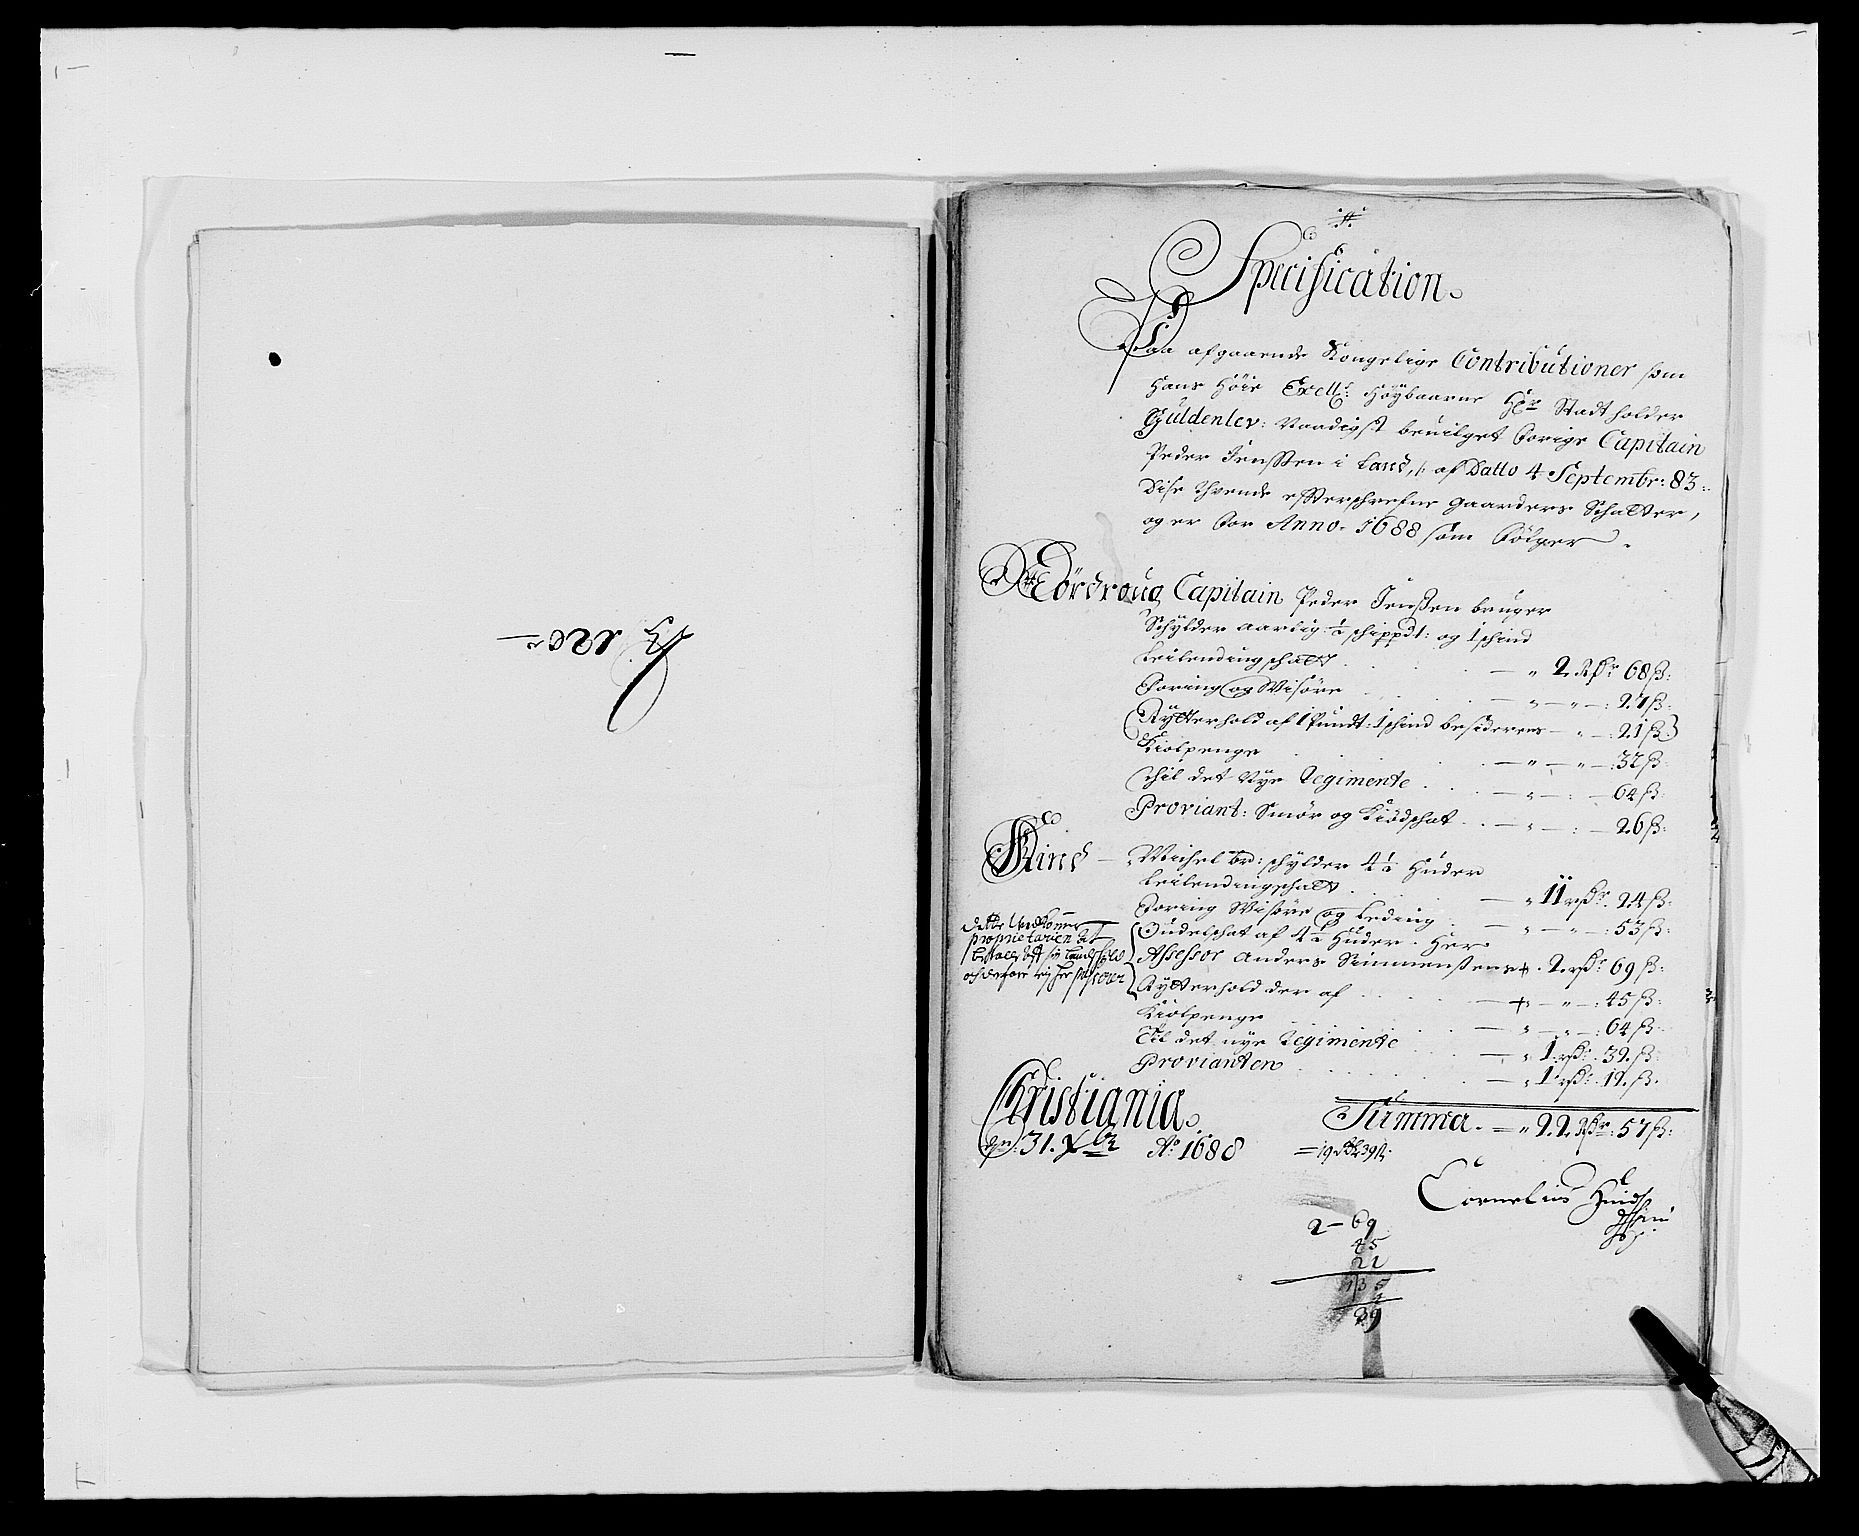 Specification
Paa afgaaende Kongelige Contributioner som
Hans Höie Excell: Höybaarne Hr Stadtholder
Guldenlev: Naadigst beuilget forige Capitain
Peder Jenssen i Land, af Datto 4 Septembr: 83
Dise thvende effterschrefne gaarders Schatter,
og er for Anno. 1688 som fölger
Nördroug Capitain Peder Jenssen bruger
Schylder aarlig ½ schippdt: og 1 schind
Leilendingschatt 2 Rdr 68 ß
Foring og Wisöre 27 ß
Rytterhold af 1 Pundt: 1 schind besideres 21 ß
Kiolpenge 32 ß
thil det Nye Regimente 64 ß
Proviant: Smör og Kiödschat 26 ß
Kind Michel bd: schylder 4½ Huder
Leilendingschatt 11 rdr 24 ß
Foring Wisöre og Leding 53 ß
Oudelschat af 4½ Huder Her
Assessor Anders Simmenssens 2 rdr 69 ß
Rytterhold der af 45 ß
Kiolpenge 64 ß
Til det nye Regimente 1 rdr 32 ß
Provianten 1 rdr 12 ß
dette
proprietarien at
Christiania
den 31. Xbr Ao 1688
Summa 22 Rdr 57 ß
19 Rdr 39 ß
Cornelius
2 - 69
45
21
135
39